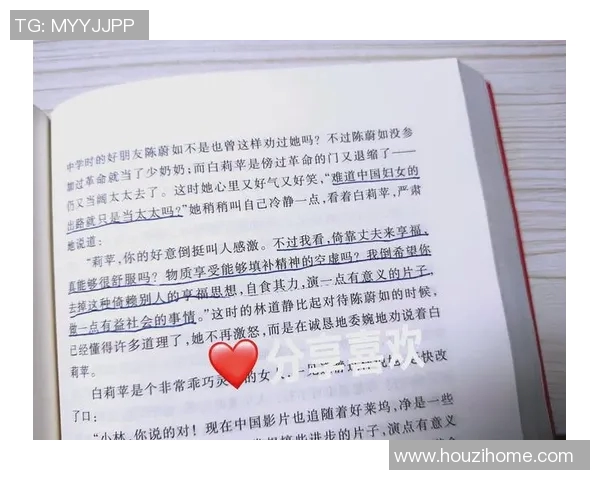 TG: MYYJJPP
中学时的好朋友陈蔚如不是也曾这样劝过她吗?不过陈蔚如没参
加过革命就当了少奶奶;而白莉苹是傍过革命的门又退缩了——
仍又当阔太太去了。这时她心里又好气又好笑,“难道中国妇女的
出路就只是当太太吗?”她稍稍叫自己冷静一点,看着白莉苹,严肃
地说道:
“莉苹,你的好意倒挺叫人感激。不过我看,倚靠丈夫来享福,
真能够很舒服吗?物质享受能够填补精神的空虚吗?我倒希望你
去掉这种倚赖别人的享福思想,自食其力,演一点有意义的片子,
做一点有益社会的事情。”这时的林道静比起对待陈蔚如的时候,
已经懂得许多道理了,她不再激怒,而是在诚恳地委婉地劝说着白
莉苹。
分享喜欢
白莉苹是个非常乖巧灵 的女 一见 快改
了口:
“小林,你说的对!现在中国影片也追随着好莱坞,净是一些
进步的片子,演点有意义
www.houzihome.com